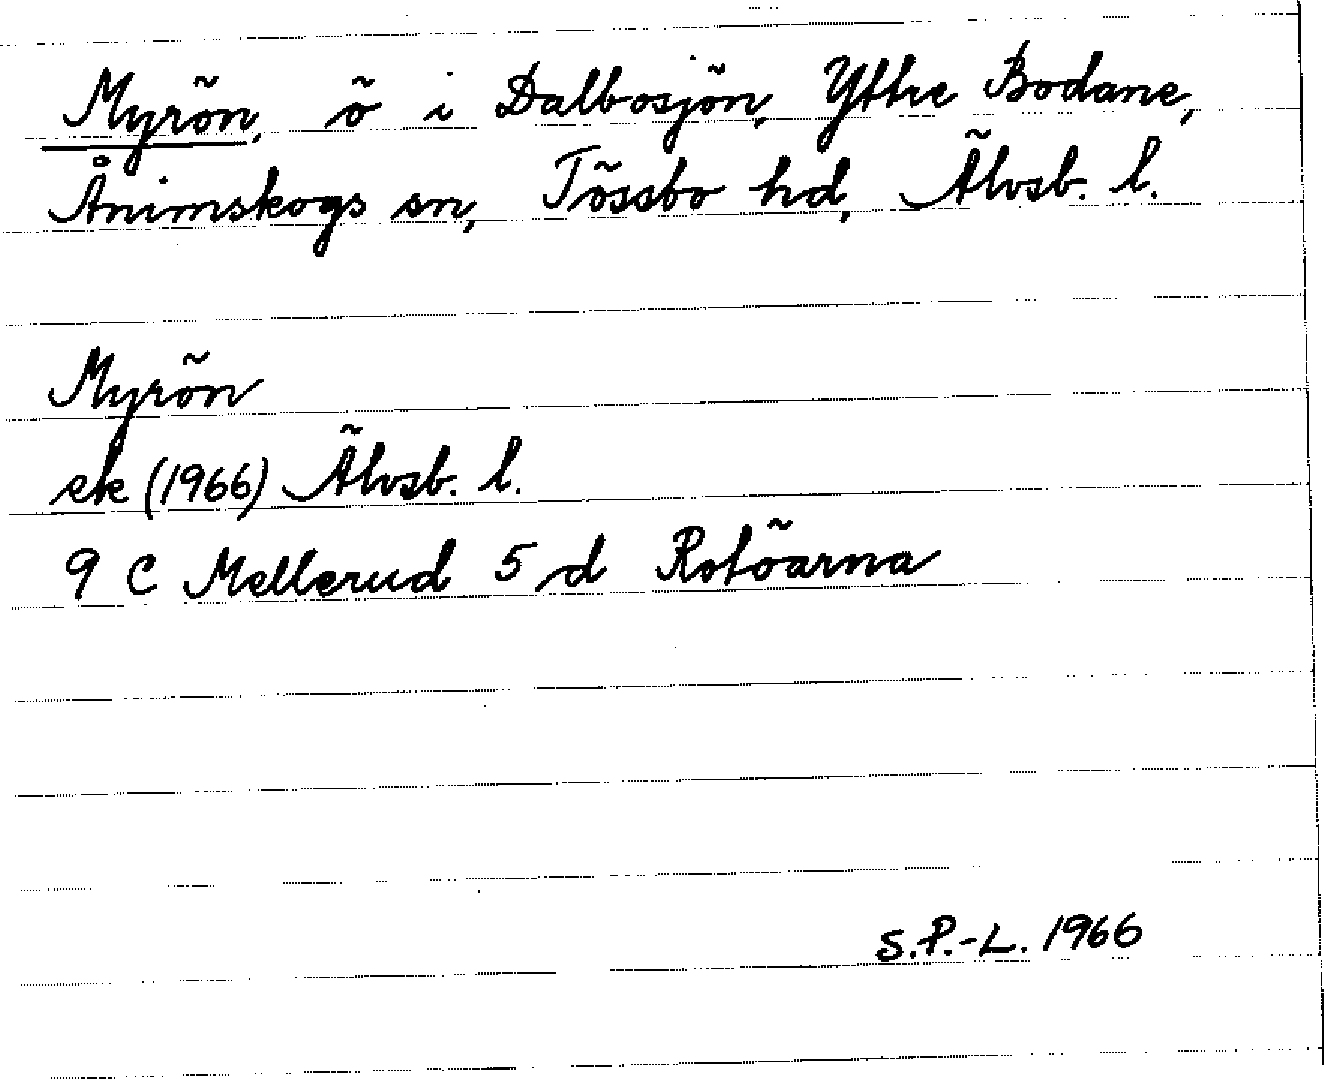 Myrön, ö i Dalbosjön, Yttre Bodane,
Ånimskogs sn, Tössbo hd, Älvsb. l.
Myrön
ek (1966) Älvsb. l.
9 C Mellerud 5 d Rotöarna
S.P.-L. 1966